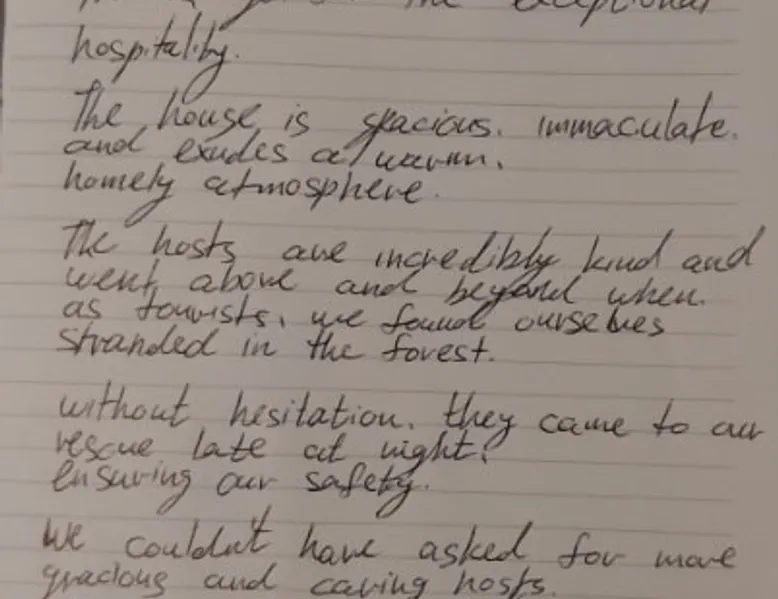 the exceptional
hospitality.
The house is spacious. immaculate.
and exudes a warm.
homely atmosphere.
The hosts are incredibly kind and
went above and beyond when.
as tourists, we found ourselves
stranded in the forest.
without hesitation. they came to our
rescue late at night.
ensuring our safety.
We couldn't have asked for more
gracious and caring hosts.